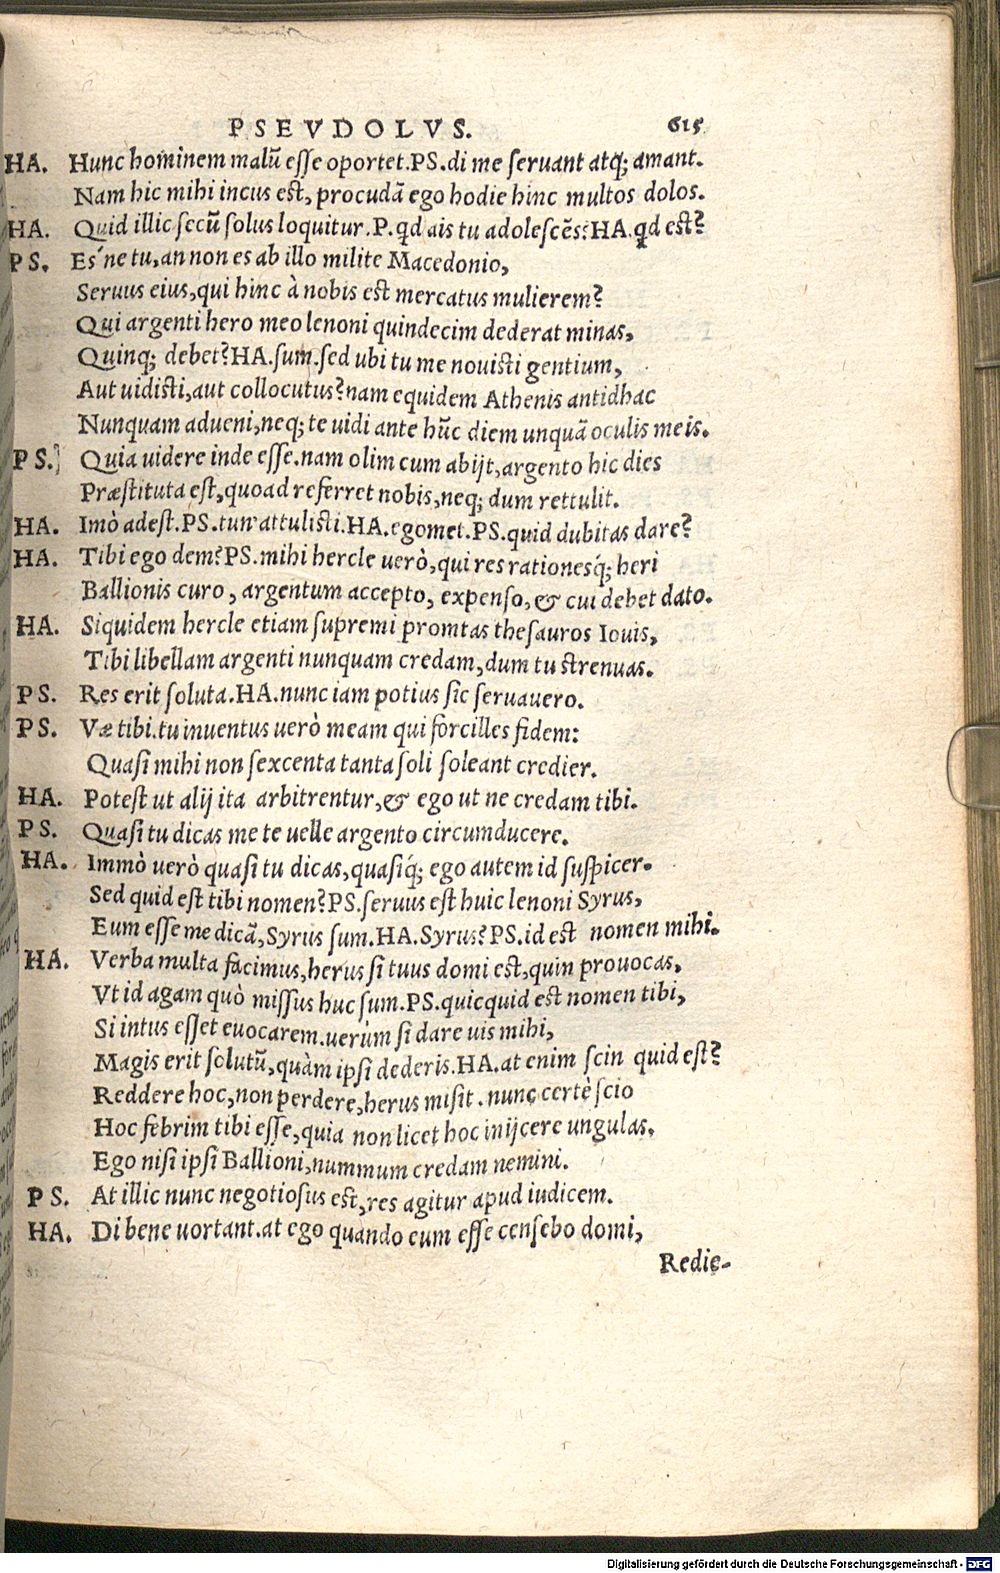 PSEVDOLVS. 615
HA. Hunc hominem malū esse oportet.PS.di me seruant atq; amant.
Nam hic mihi incus est, procudā ego hodie hinc multos dolos.
HA. Quid illic secū solus loquitur.P.qd ais tu adolescēs?HA.qd est?
PS. Es'ne tu,an non es ab illo milite Macedonio,
Seruus eius,qui hinc à nobis est mercatus mulierem?
Qui argenti hero meo lenoni quindecim dederat minas,
Quinq; debet?HA.sum.sed ubi tu me nouisti gentium,
Aut uidisti,aut collocutus?nam equidem Athenis antidhac
Nunquam adueni,neq; te uidi ante hūc diem unquā oculis meis.
PS. Quia uidere inde esse.nam olim cum abijt,argento hic dies
Præstituta est,quoad referret nobis,neq; dum rettulit.
HA. Imò adest.PS.tun'attulisti.HA.egomet.PS.quid dubitas dare?
HA. Tibi ego dem?PS.mihi hercle uerò,qui res rationesq́; heri
Ballionis curo, argentum accepto, expenso, & cui debet dato.
HA. Siquidem hercle etiam supremi promtas thesauros Iouis,
Tibi libellam argenti nunquam credam,dum tu strenuas.
PS. Res erit soluta.HA.nunc iam potius sic seruauero.
PS. Væ tibi.tu inuentus uerò meam qui forcilles fidem:
Quasi mihi non sexcenta tanta soli soleant credier.
HA. Potest ut alij ita arbitrentur,& ego ut ne credam tibi.
PS. Quasi tu dicas me te uelle argento circumducere.
HA. Immò uerò quasi tu dicas,quasiq́; ego autem id suspicer.
Sed quid est tibi nomen?PS.seruus est huic lenoni Syrus,
Eum esse me dicā,Syrus sum.HA.Syrus?PS.id est nomen mihi.
HA. Verba multa facimus,herus si tuus domi est,quin prouocas,
Vt id agam quò missus huc sum.PS.quicquid est nomen tibi,
Si intus esset euocarem.uerùm si dare uis mihi,
Magis erit solutū,quàm ipsi dederis.HA.at enim scin quid est?
Reddere hoc,non perdere,herus misit.nunc certè scio
Hoc febrim tibi esse,quia non licet hoc inijcere ungulas.
Ego nisi ipsi Ballioni,nummum credam nemini.
PS. At illic nunc negotiosus est,res agitur apud iudicem.
HA. Di bene uortant.at ego quando eum esse censebo domi,
Redie-
Digitalisierung gefördert durch die Deutsche Forschungsgemeinschaft - DFG